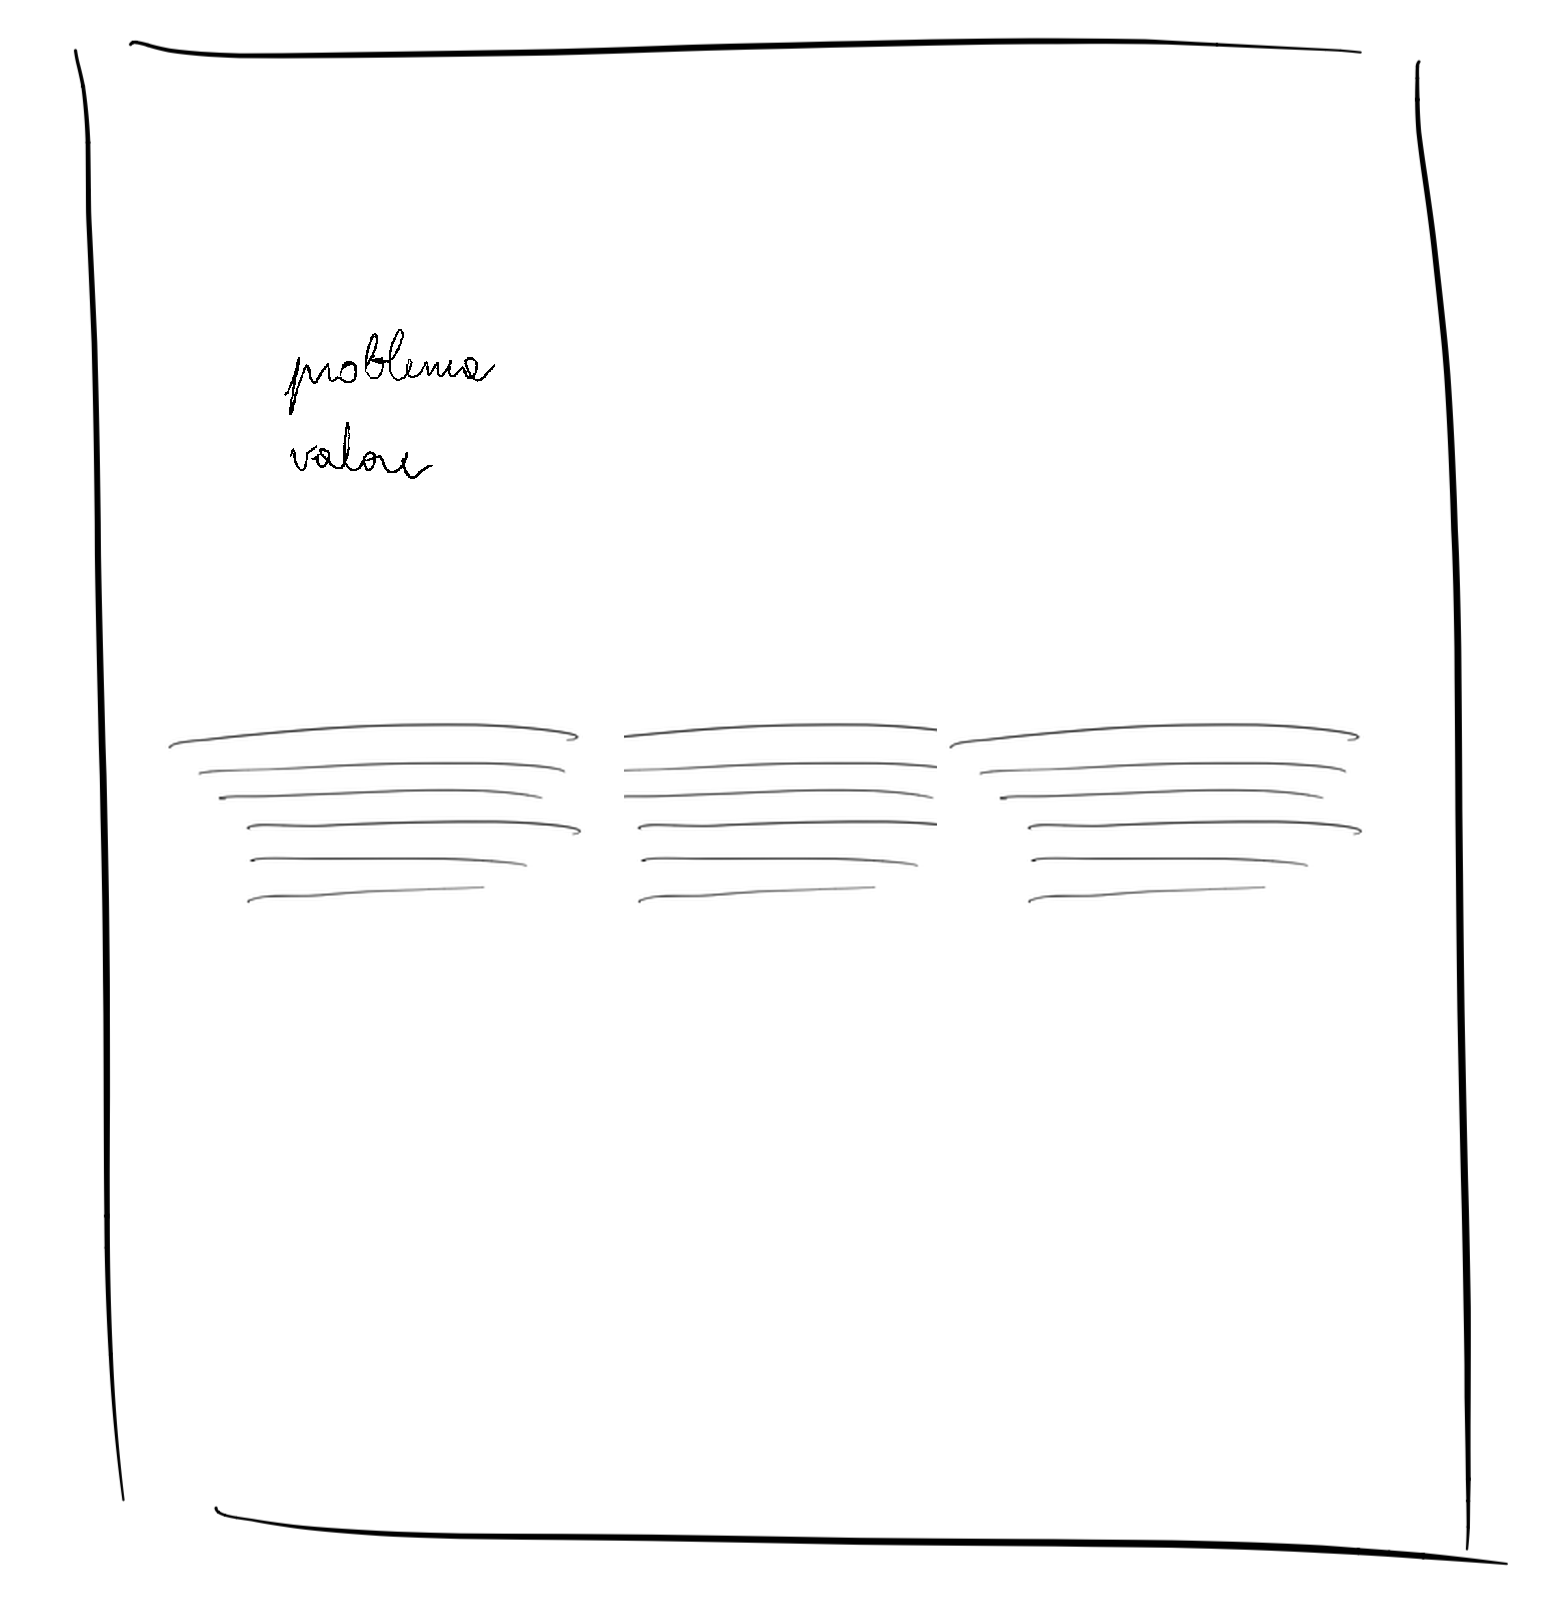 problema
valore